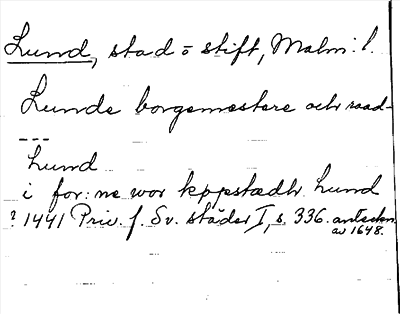 Lund, stad o stift, Malm: l.
Lunde borgemestere och raad-
---
Lund
i for: ne wor køpstædh Lund
? 1441 Priv. f. Sv. städer I, s. 336. anteckn.
av 1648.